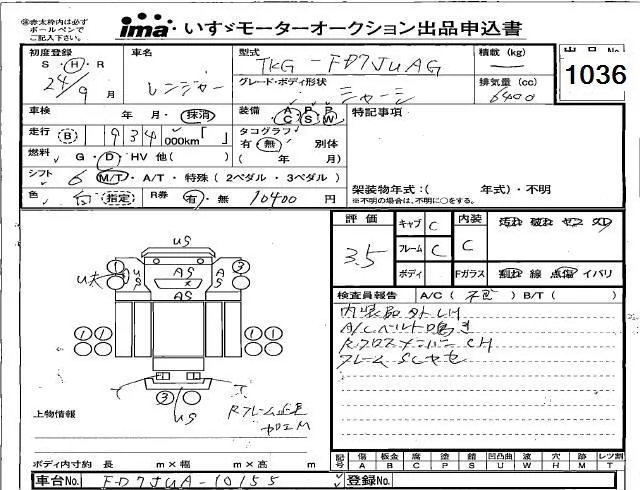 ※赤太枠内は必ず
ボールペンで
ご記入下さい。
ima いすゞモーターオークション出品申込書
初度登録 車名 型式 積載(kg) 出品No.
S・H・R TKG-FD7JUAG
24/9月 レンジャー グレード・ボディ形状 排気量(cc) 1036
シャーシ 6400
車検 年 月・抹消 装備 AC PS PW 特記事項
走行 B 934,000km「 」 タコグラフ
有・無 別体
燃料 G・D・HV 他( ) ( 年 月)
シフト 6 M/T・A/T・特殊(2ペダル・3ペダル) 架装物年式:( 年式)・不明
色 白 指定 R券 有・無 10400円 ※不明の場合は、不明に○をする。
評価 キャブ C 内装 汚れ 破れ ヤコ スレ
3.5 フレーム C C
ボディ Fガラス 割れ 線 点傷 イバリ
検査員報告 A/C( 不可 ) B/T( )
内装品外しLH
A/Cベルト鳴き
Rクロスメンバー CH
フレームSCサセ
US
AS
AS
AS
US
Rフレーム
加工M
上物情報
ボディ内寸約 長 m×幅 m×高 m
記号 傷 板金 腐 塗 錆 凹凸曲 波 穴 跡 レツ割
A B C P S U W H M T
車台No. FD7JUA-10155 登録No.